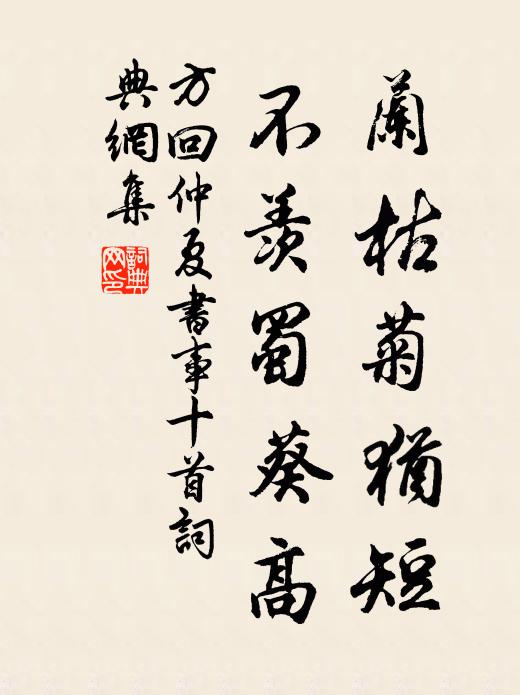 蘭枯菊猶短
不羨蜀葵高
方回仲夏書事十首詞
典網集
詞典
网印